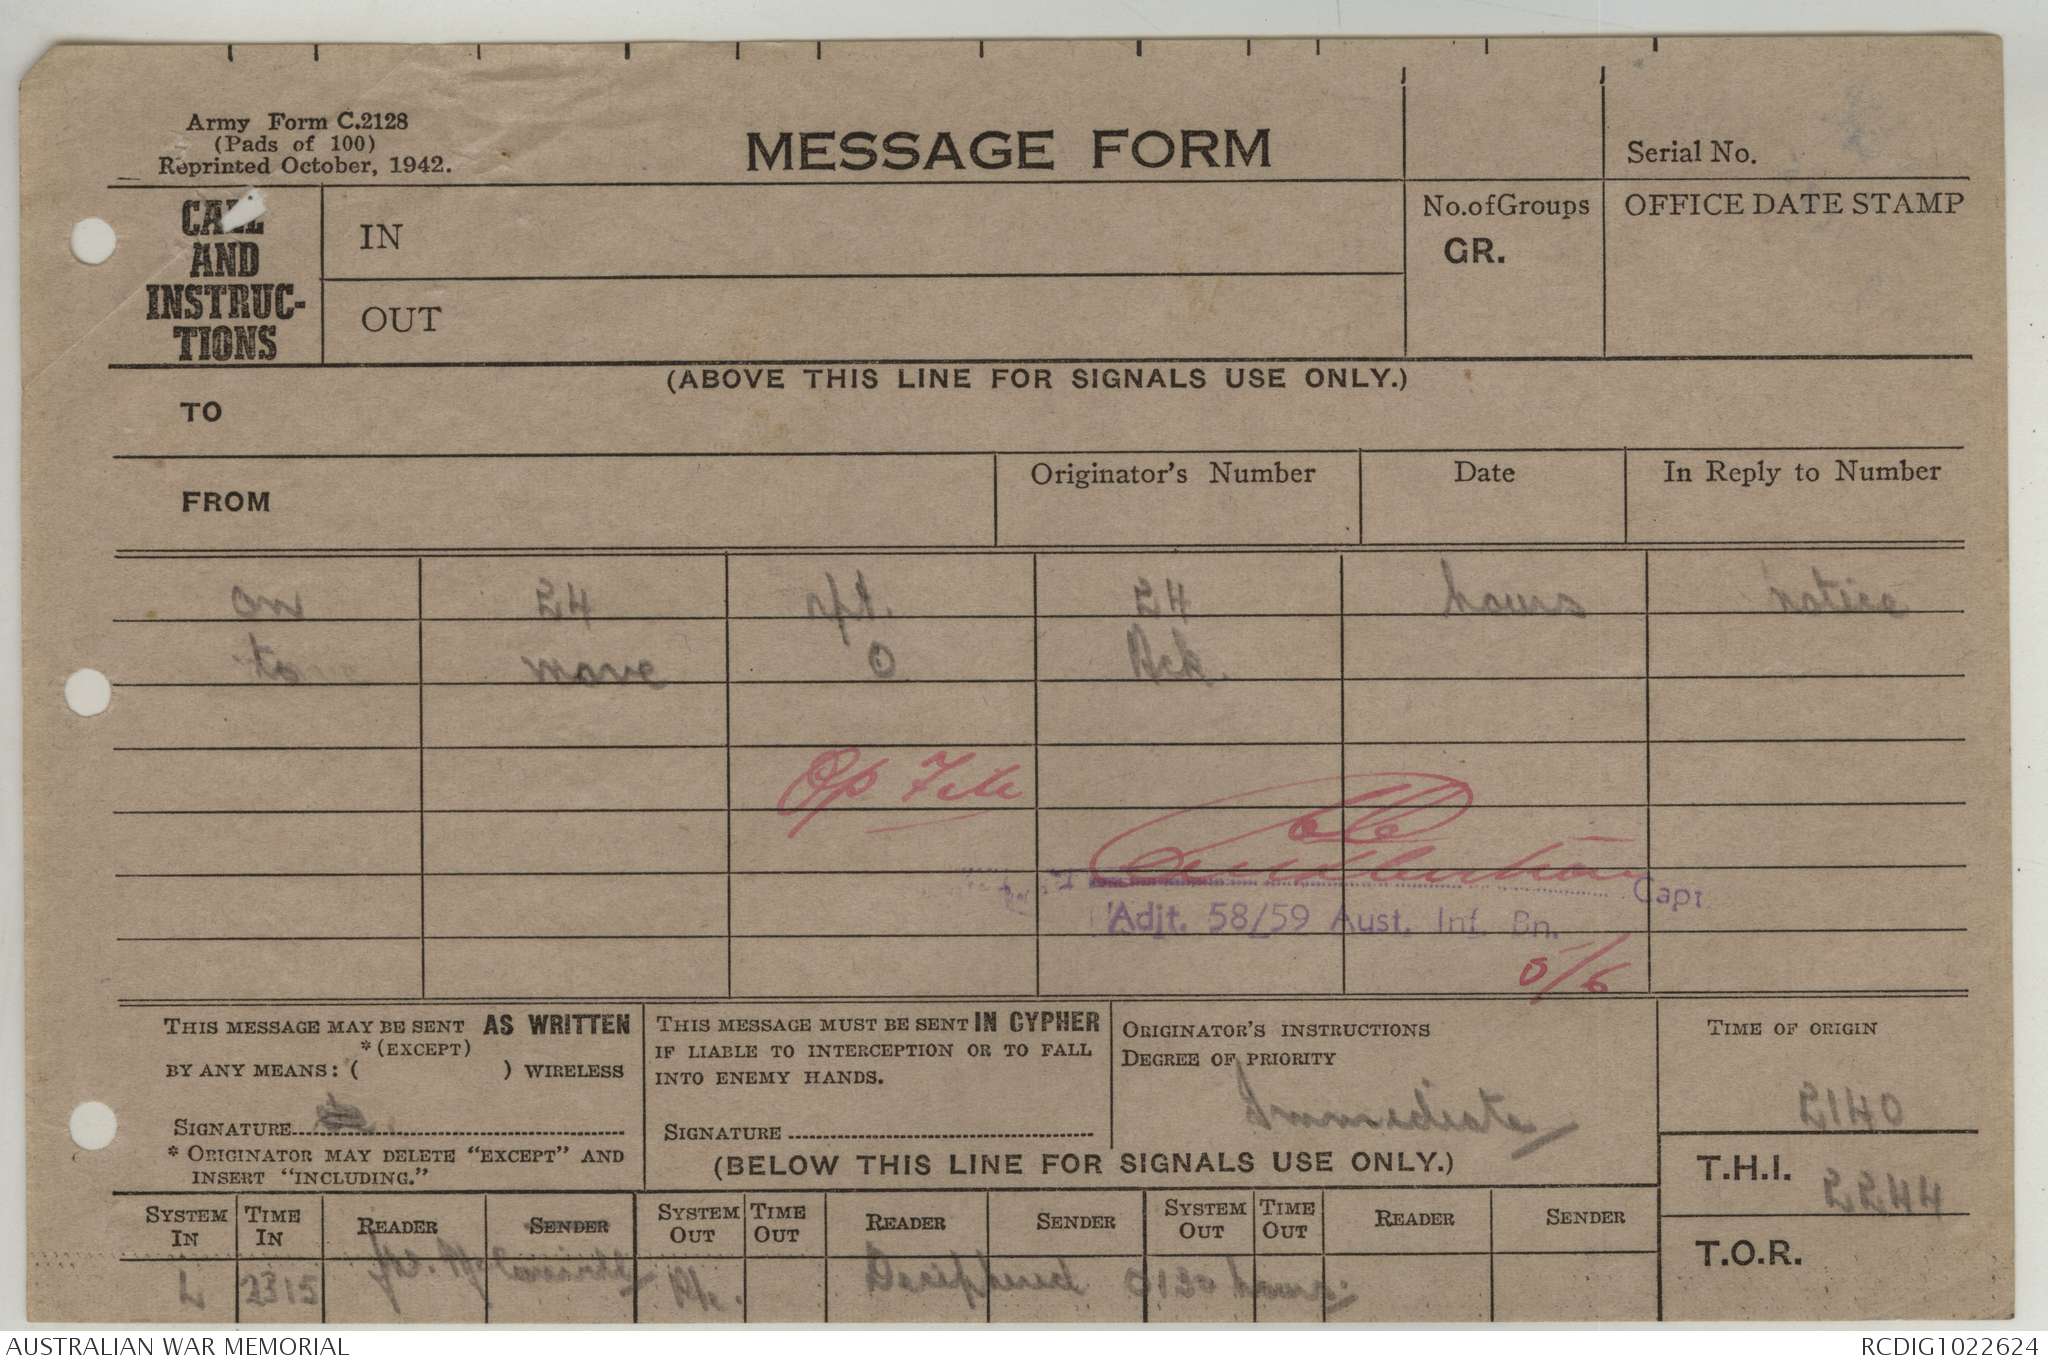 Army Form C.2128
(Pads of 100)
Reprinted October, 1942.
MESSAGE FORM
Serial No.
CALL AND INSTRUC-TIONS
IN
OUT
No. of Groups
GR.
OFFICE DATE STAMP
(ABOVE THIS LINE FOR SIGNALS USE ONLY.)
TO
FROM
Originator's Number
Date
In Reply to Number
on 24 rpt. 24 hours notice
to move O Ack.
Op File
Capt
Adjt. 58/59 Aust. Inf. Bn.
5/6
THIS MESSAGE MAY BE SENT AS WRITTEN
*(EXCEPT)
BY ANY MEANS: ( ) WIRELESS
SIGNATURE
* ORIGINATOR MAY DELETE "EXCEPT" AND
INSERT "INCLUDING."
THIS MESSAGE MUST BE SENT IN CYPHER
IF LIABLE TO INTERCEPTION OR TO FALL
INTO ENEMY HANDS.
SIGNATURE
ORIGINATOR'S INSTRUCTIONS
DEGREE OF PRIORITY
Immediate
TIME OF ORIGIN
2140
(BELOW THIS LINE FOR SIGNALS USE ONLY.)
T.H.I. 2244
T.O.R.
SYSTEM IN TIME IN READER SENDER SYSTEM OUT TIME OUT READER SENDER SYSTEM OUT TIME OUT READER SENDER
L 2315
Deciphered 0120 hours
AUSTRALIAN WAR MEMORIAL
RCDIG1022624